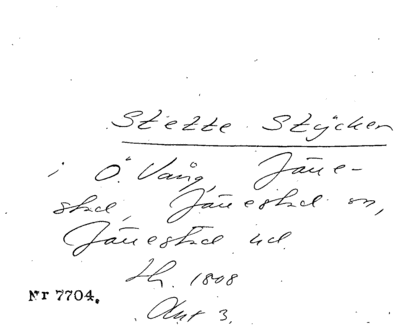 Stette Stycken
i Ö. Vång, Järre-
stad, Järrestad sn,
Järrestad hd.
Lh. 1808
Akt 3.
Nr 7704.